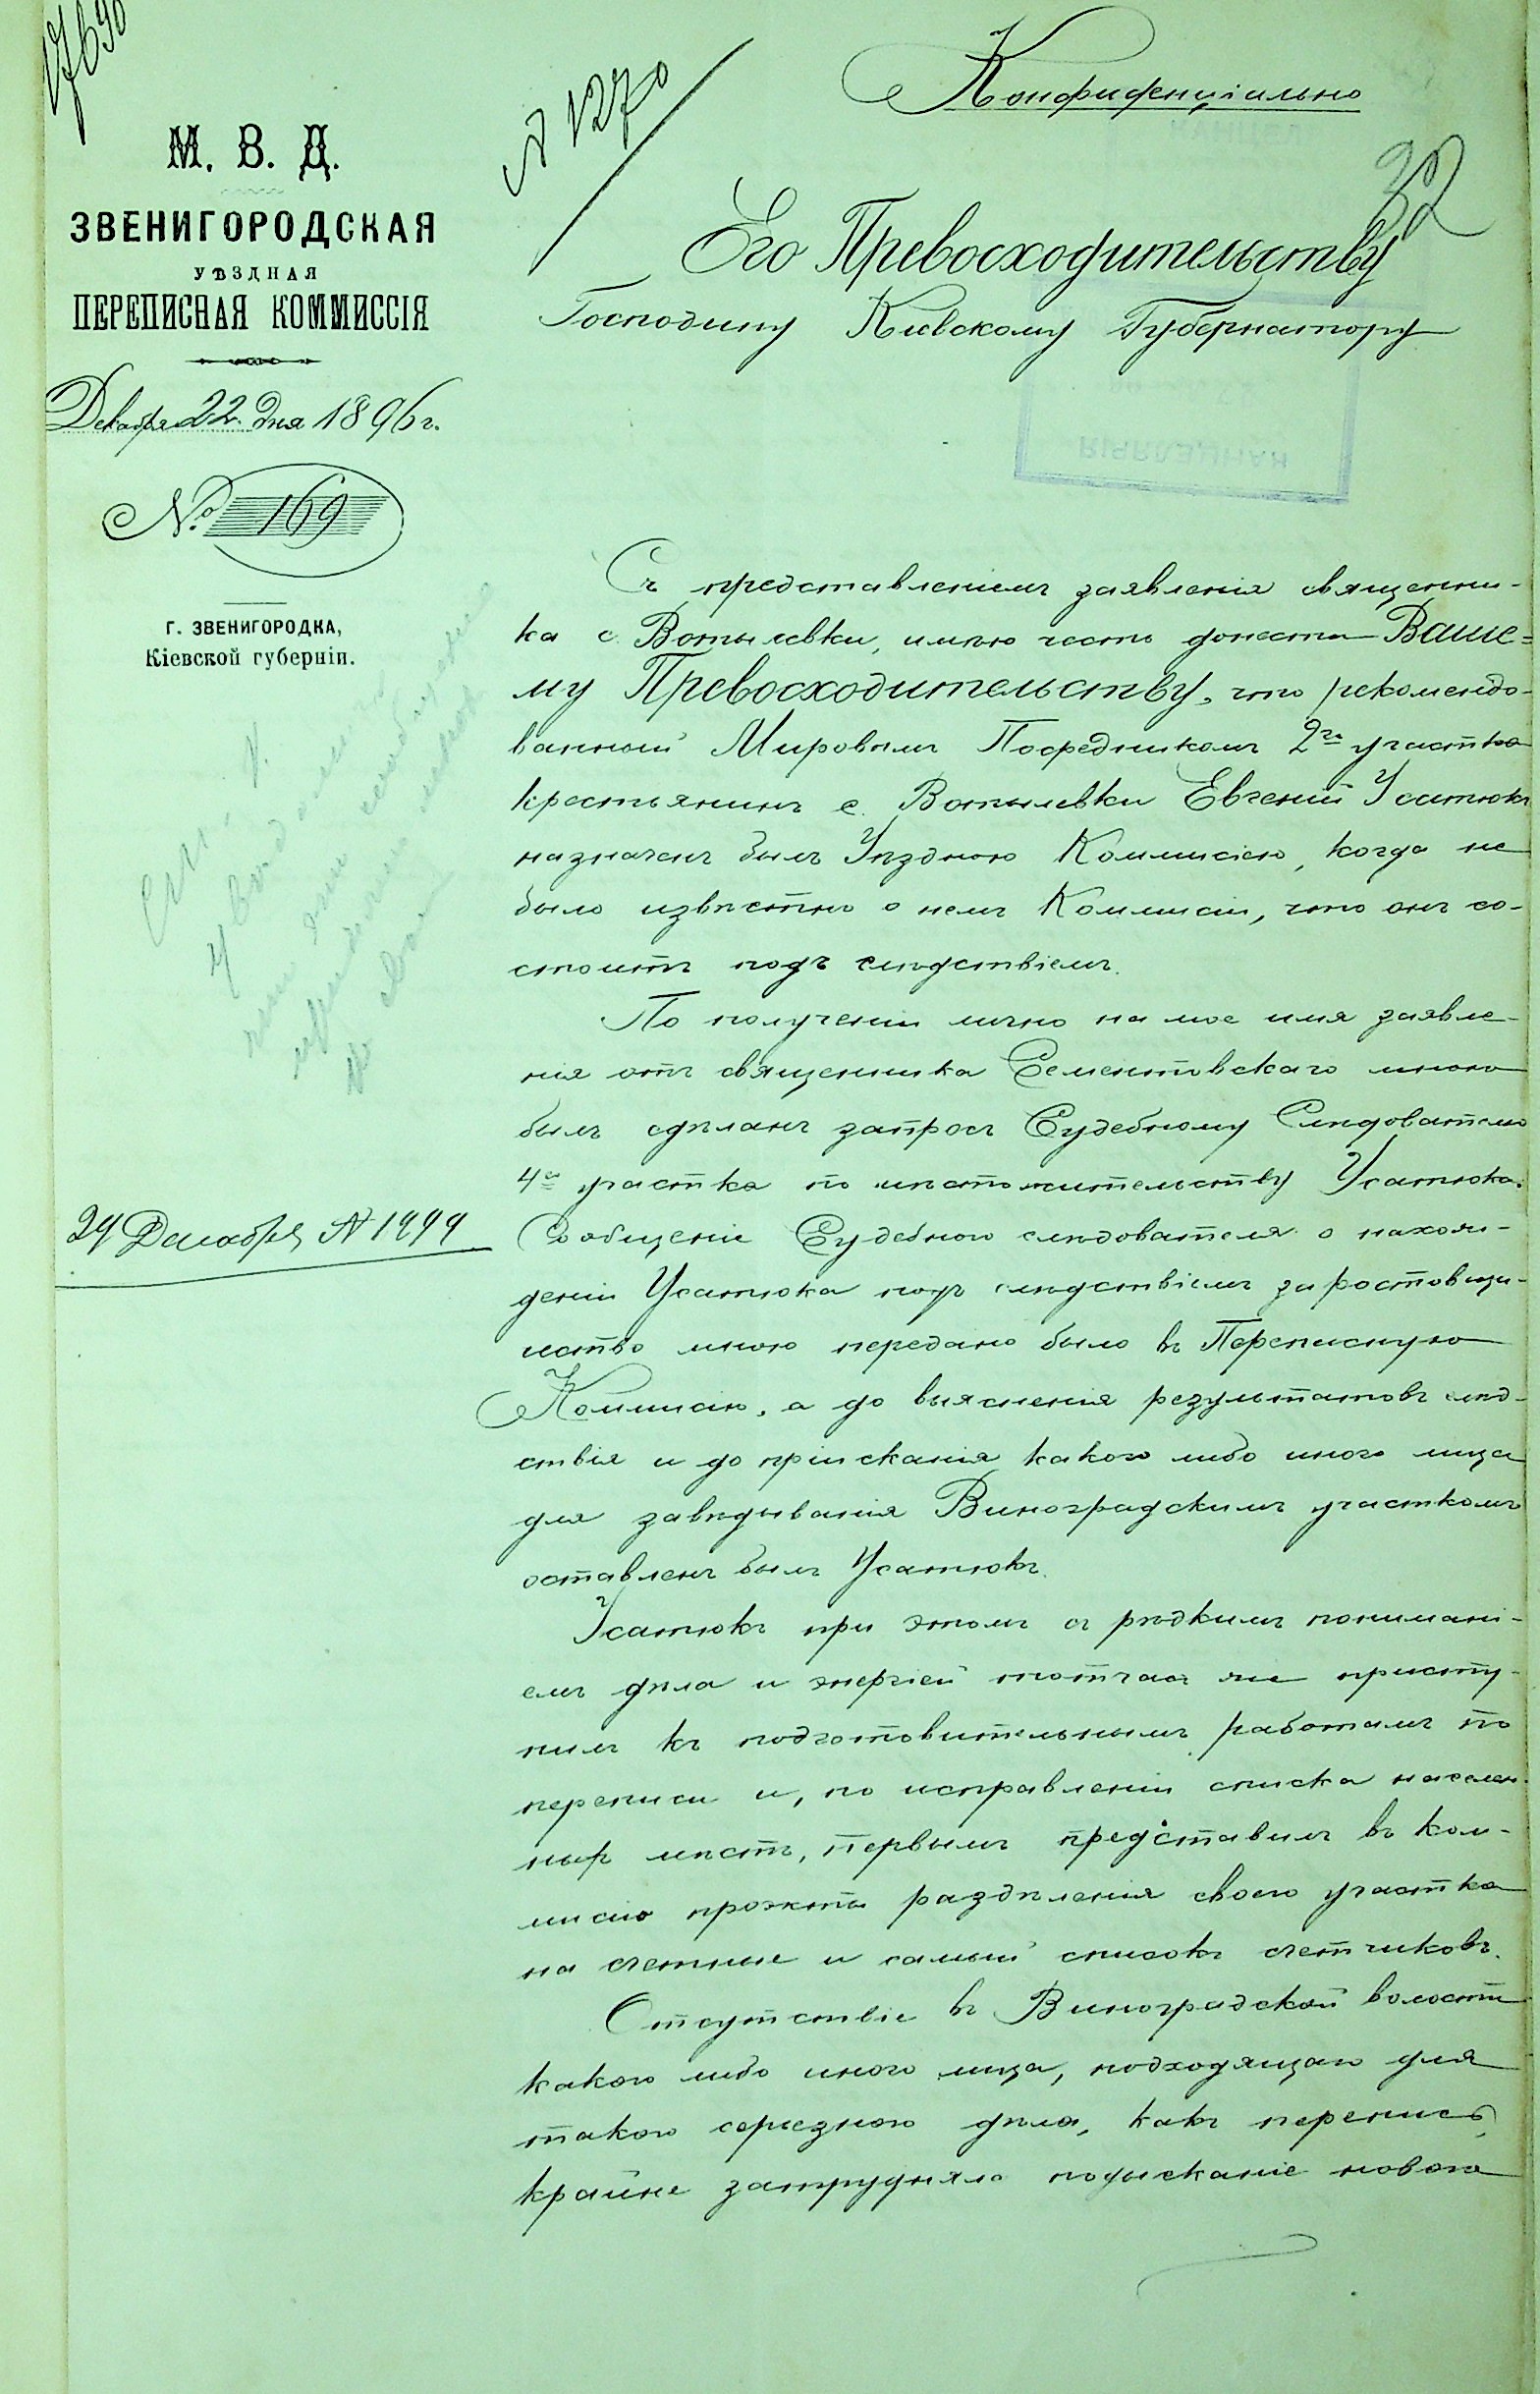 17690
Конфиденціально
№ 1270
32
М. В. Д.
ЗВЕНИГОРОДСКАЯ
УѢЗДНАЯ
ПЕРЕПИСНАЯ КОММИССІЯ
Декабря 22 дня 1896 г.
№ 169
Г. ЗВЕНИГОРОДКА,
Кіевской губерніи.
Его Превосходительству
Господину Кіевскому Губернатору
КАНЦЕЛЯРІЯ
Съ представленіемъ заявленія священни-
ка с. Вотылевки, имѣю честь донести Ваше=
му Превосходительству, что рекомендо-
ванный Мировымъ Посредникомъ 2го участка
крестьянинъ с. Вотылевки Евгеній Усатюкъ
назначенъ былъ Уѣздною Коммисіею, когда не
было извѣстно о немъ Коммисіи, что онъ со-
стоитъ подъ слѣдствіемъ.
По полученіи лично на мое имя заявле-
нія отъ священника Сементовскаго мною
былъ сдѣланъ запросъ Судебному Слѣдователю
4го участка по мѣстожительству Усатюка.
Сообщеніе Судебного слѣдователя о нахож-
деніи Усатюка подъ слѣдствіемъ за ростовщи-
чество мною передано было въ Переписную
Коммисію, а до выясненія результатовъ слѣд-
ствія и до пріисканія какого либо иного лица
для завѣдыванія Виноградскимъ участкомъ
оставленъ былъ Усатюкъ.
24 Декабря № 1444
Усатюкъ при этомъ съ рѣдкимъ понимані-
емъ дѣла и энергіей тотчасъ же присту-
пилъ къ подготовительнымъ работамъ по
переписи и, по исправленіи списка населен-
ныхъ мѣстъ, первымъ представилъ въ ком-
мисію проэктъ раздѣленія своего участка
на счетные и самый списокъ счетчиковъ.
Отсутствіе въ Виноградской волости
какого либо иного лица, подходящаго для
такого серьезного дѣла, какъ перепись,
крайне затрудняло подысканіе нового